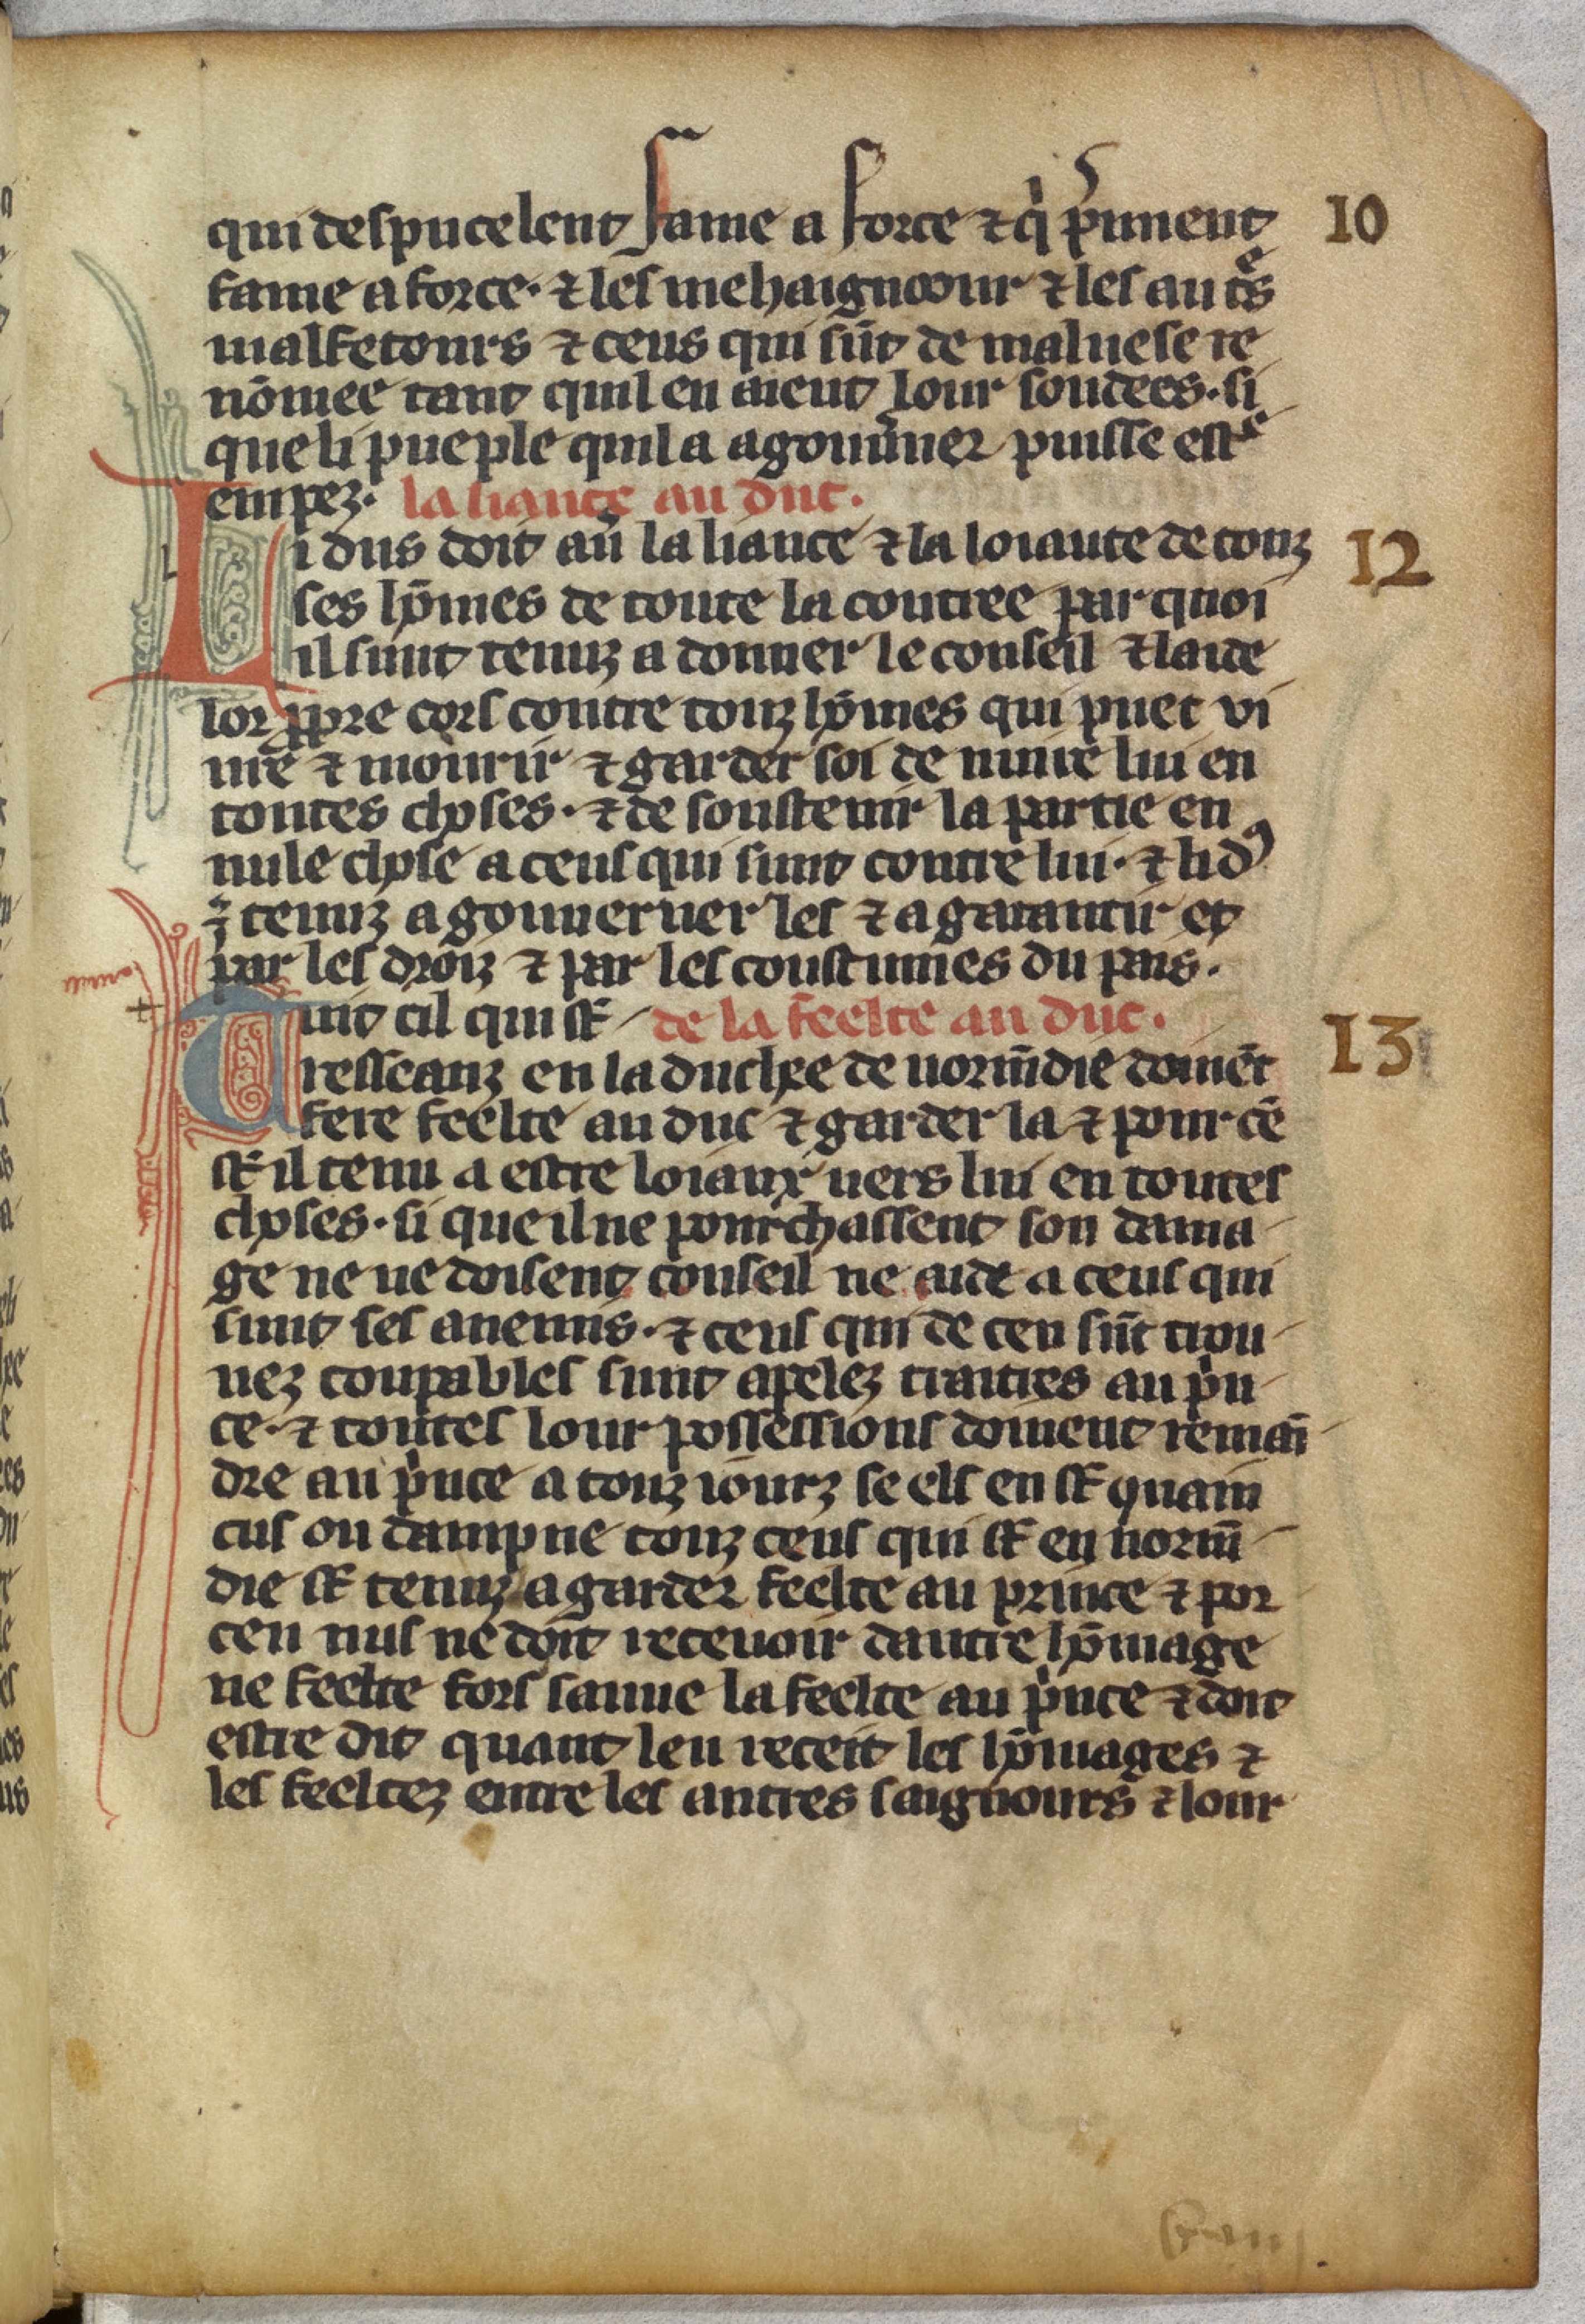 qui despucelent fame a force ⁊ q̇ p̃nnent 10
fame a force· ⁊ les mehaignoour ⁊ les autͤs
malfetours ⁊ ceus qui sūt de maluese re
nōmee tant quil en aient lour soudees· si
que li pueple quil a a gouu̾ner puisse estͤ
em pez· la liance au duc·
Li dus doit au̾ la liance ⁊ la loiaute de touz 12
ses hōmes de toute la contree par quoi
il sunt tenuz a donner le conseil ⁊ laide
lor ꝓpre cors contre touz hōmes qui puet vi
ure ⁊ mourir ⁊ garder soi de nuire lui en
toutes choses· ⁊ de soustenir la partie en
nule chose a ceus qui sunt contre lui· ⁊ li dꝰ
ē tenuz a gouuerner les ⁊ a garantir et
par les droiz ⁊ par les coustumes du pais·
Tuit cil qui st̄ de la feelte au duc· 13
resseanz en la duchee de norm̄die doiuēt
fere feelte au duc ⁊ garder la ⁊ pour cē
st̄ il tenu a estre loiaux uers lui en toutes
choses· si que il ne pourchassent son dama
ge ne ne doisent conseil ne aide a ceus qui
sunt ses anemis· ⁊ ceus qui de cen sūt trou
uez coupables sunt apelez traitres au p̍n
ce· ⁊ toutes lour possessions doiuent remai̅
dre au p̍nce a touz iourz se els en st̄ quain
cus ou dampne touz ceus qui st̄ en norm̄
die st̄ tenuz a garder feelte au prince ⁊ por
cen nus ne doit receuoir dautre hōmage
ne feelte fors sauue la feelte au p̍nce ⁊ doit
estre dit quant len receit les hōmages ⁊
les feeltez entre les autres saignours ⁊ lour